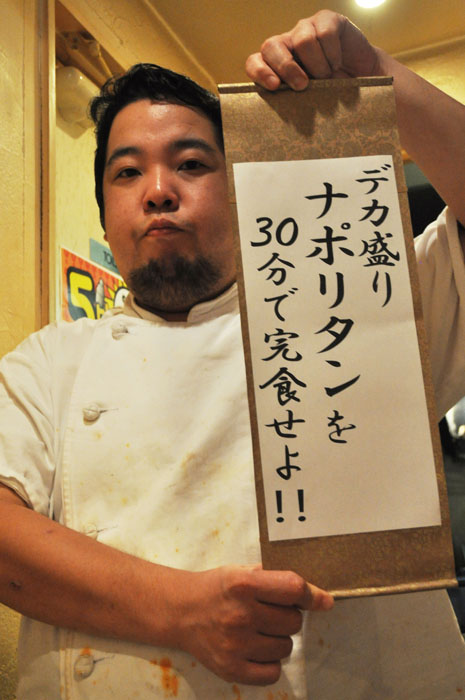 デカ盛り
ナポリタンを
30分で完食せよ!!